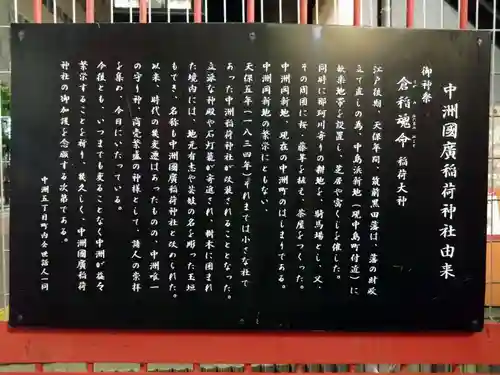 中洲國廣稲荷神社由来
御神祭
倉稲魂命 稲荷大神
江戸後期、天保年間、筑前黒田藩は、藩の財政
立て直しの為、中島浜新地(現中島町付近)に
歓楽地帯を設置し、芝居や富くじを催した。
同時に那珂川寄りの新地を、騎馬場とし、又
その周囲に桜、藤等を植え、茶屋をつくった。
中洲岡新地、現在の中洲町のはじまりである。
中洲岡新地の繁栄にともない、
天保五年(一八三四年)それまでは小さな社で
あった中洲稲荷神社が改装されることとなった。
立派な神殿や石灯籠が寄進され、樹木に囲まれ
た境内には、地元有志や芸妓の名を彫った玉垣
もでき、名称も中洲國廣稲荷神社と改められた。
以来、時代の変遷はあったものの、中洲唯一
の守り神、商売繁盛の神様として、諸人の崇拝
を集め、今日にいたっている。
今後とも、いつまでも変ることなく中洲が益々
繁栄することを祈り、幾久しく、中洲國廣稲荷
神社の御加護を念願する次第である。
中洲五丁目町内会世話人一同